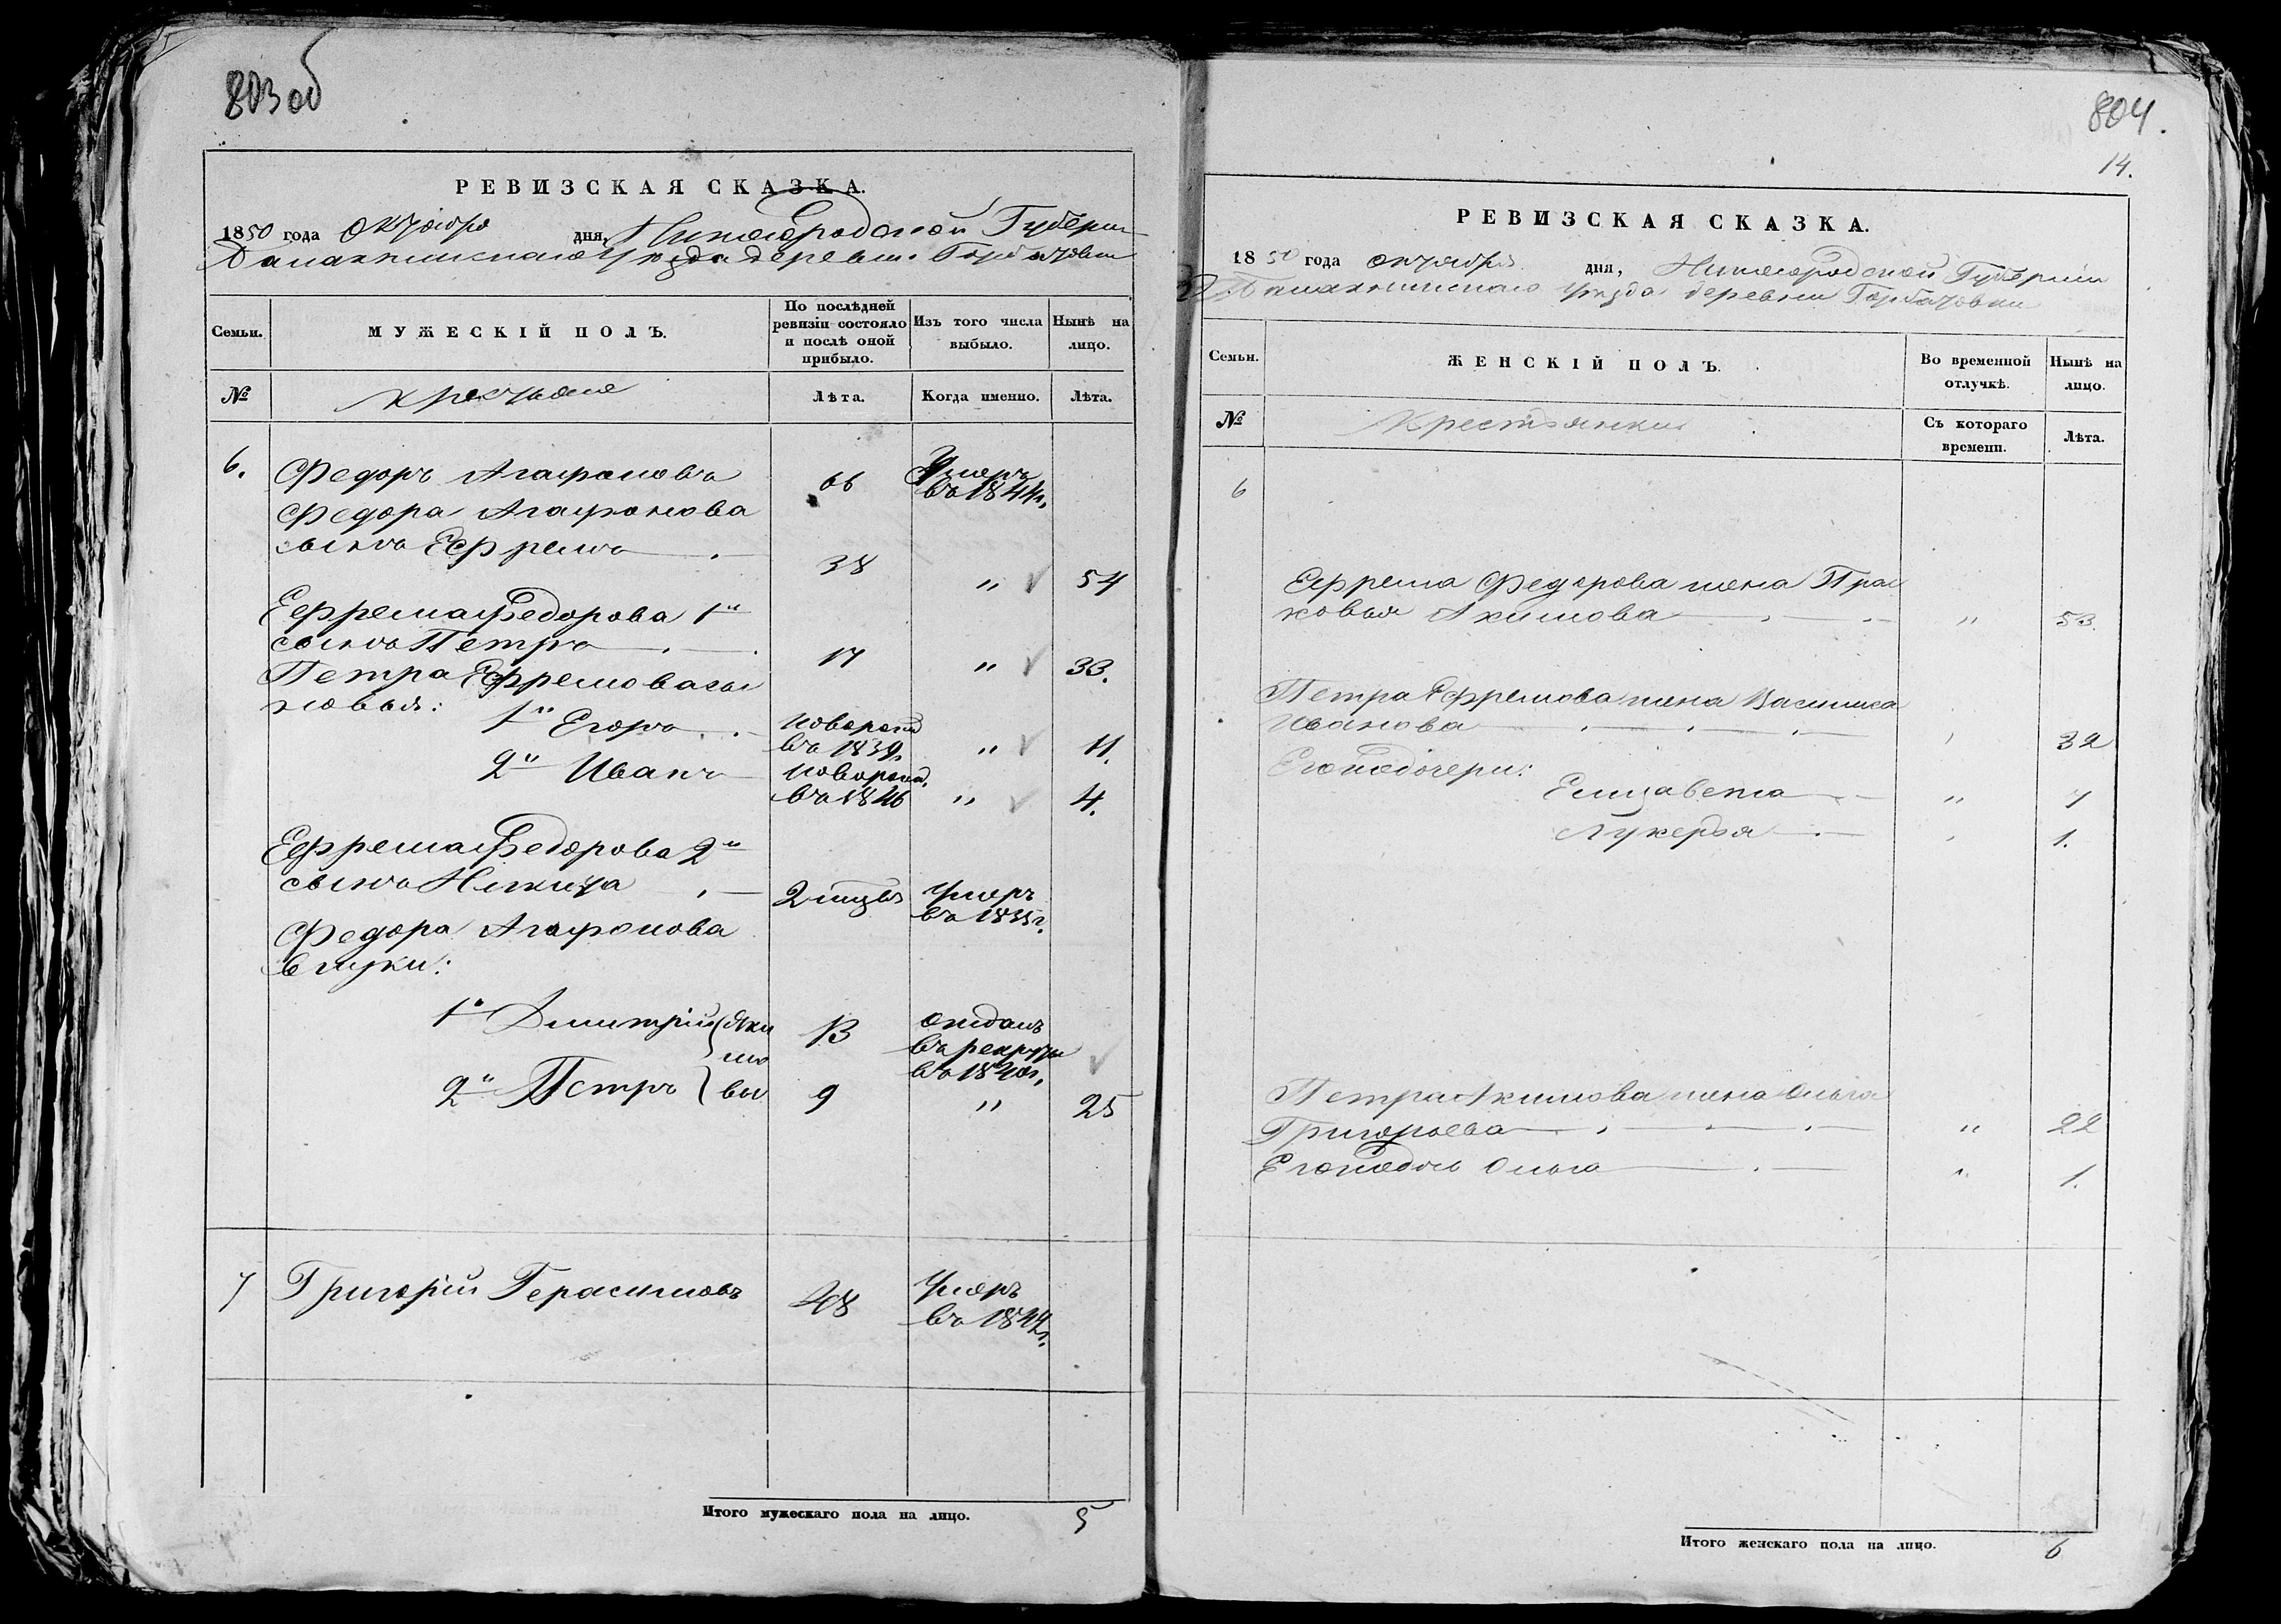 803 об
РЕВИЗСКАЯ СКАЗКА.
1850 года октября дня, Нижегородской Губернии
Балахнинского уѣзда деревни Горбатовки
Семьи.
МУЖЕСКІЙ ПОЛЪ.
По послѣдней ревизіи состояло и послѣ оной прибыло.
Изъ того числа выбыло.
Нынѣ на лицо.
№
крестьяне
Лѣта.
Когда именно.
Лѣта.
6. Федоръ Агафоновъ 66 Умеръ въ 1844г.
Федора Агафонова
сынъ Ефремъ 38 " 54
Ефрема Федорова 1й
сынъ Петръ 17 " 33.
Петра Ефремова сы
новья: 1й Егоръ новорожд въ 1839г. " 11.
2й Иванъ новорожд. въ 1846 " 4.
Ефрема Федорова 2й
сынъ Никита 2 мцвъ Умеръ въ 1835г.
Федора Агафонова
внуки:
1й Дмитрій Аки 13 отданъ
мо въ рекруты
въ 1840г.
2й Петръ вы 9 " 25
7 Григорій Герасимовъ 48 Умеръ
въ 1844г.
Итого мужескаго пола на лицо. 5
804.
14.
РЕВИЗСКАЯ СКАЗКА.
1850 года октября дня, Нижегородской Губерніи
Балахнинского уѣзда деревни Горбатовки
Семьи.
ЖЕНСКІЙ ПОЛЪ.
Во временной отлучкѣ.
Нынѣ на лицо.
№
Крестьянки
Съ котораго времени.
Лѣта.
6
Ефрема Федорова жена Прас
ковья Акимова " 53.
Петра Ефремова жена Василиса
Иванова " 32
Егоже дочери:
Елизавета " 7
Лукерья " 1.
Петра Акимова жена Ольга
Григорьева " 22
Егоже дочь Ольга " 1.
Итого женскаго пола на лицо. 6